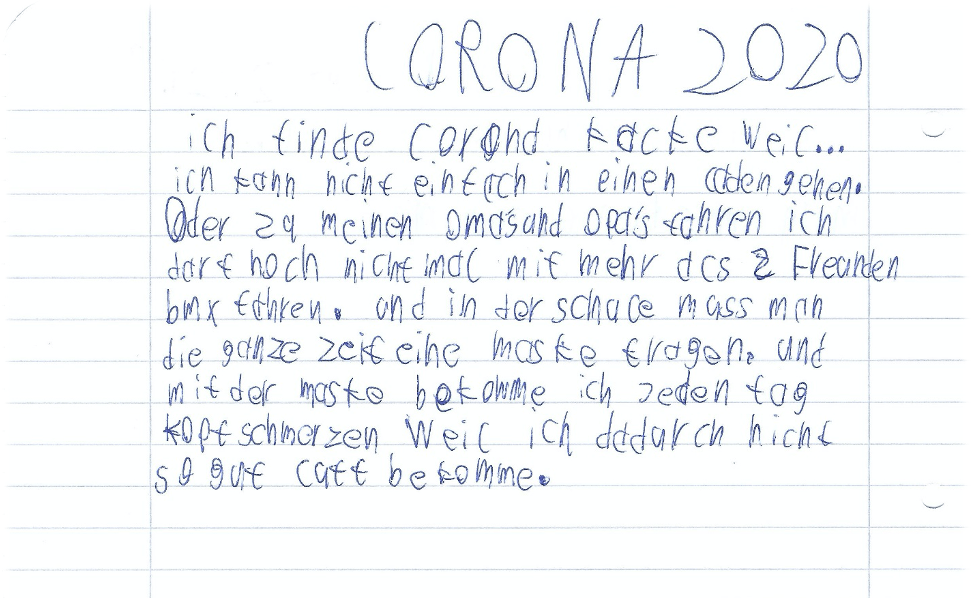 CORONA 2020
ich finde corona kacke weil...
ich kann nicht einfach in einen laden gehen.
Oder zu meinen Omas und Opa's fahren ich
darf noch nicht mal mit mehr als 2 Freunden
bmx fahren. und in der schule muss man
die ganze zeit eine maske tragen. und
mit der maske bekomme ich jeden tag
kopfschmerzen weil ich dadurch nicht
so gut luft bekomme.